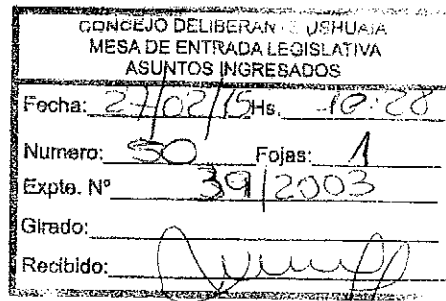 CONCEJO DELIBERANTE USHUAIA
MESA DE ENTRADA LEGISLATIVA
ASUNTOS INGRESADOS
Fecha: 27/02/15 Hs. 10:28
Numero: 50 Fojas: 1
Expte. Nº 39/2003
Girado:
Recibido: